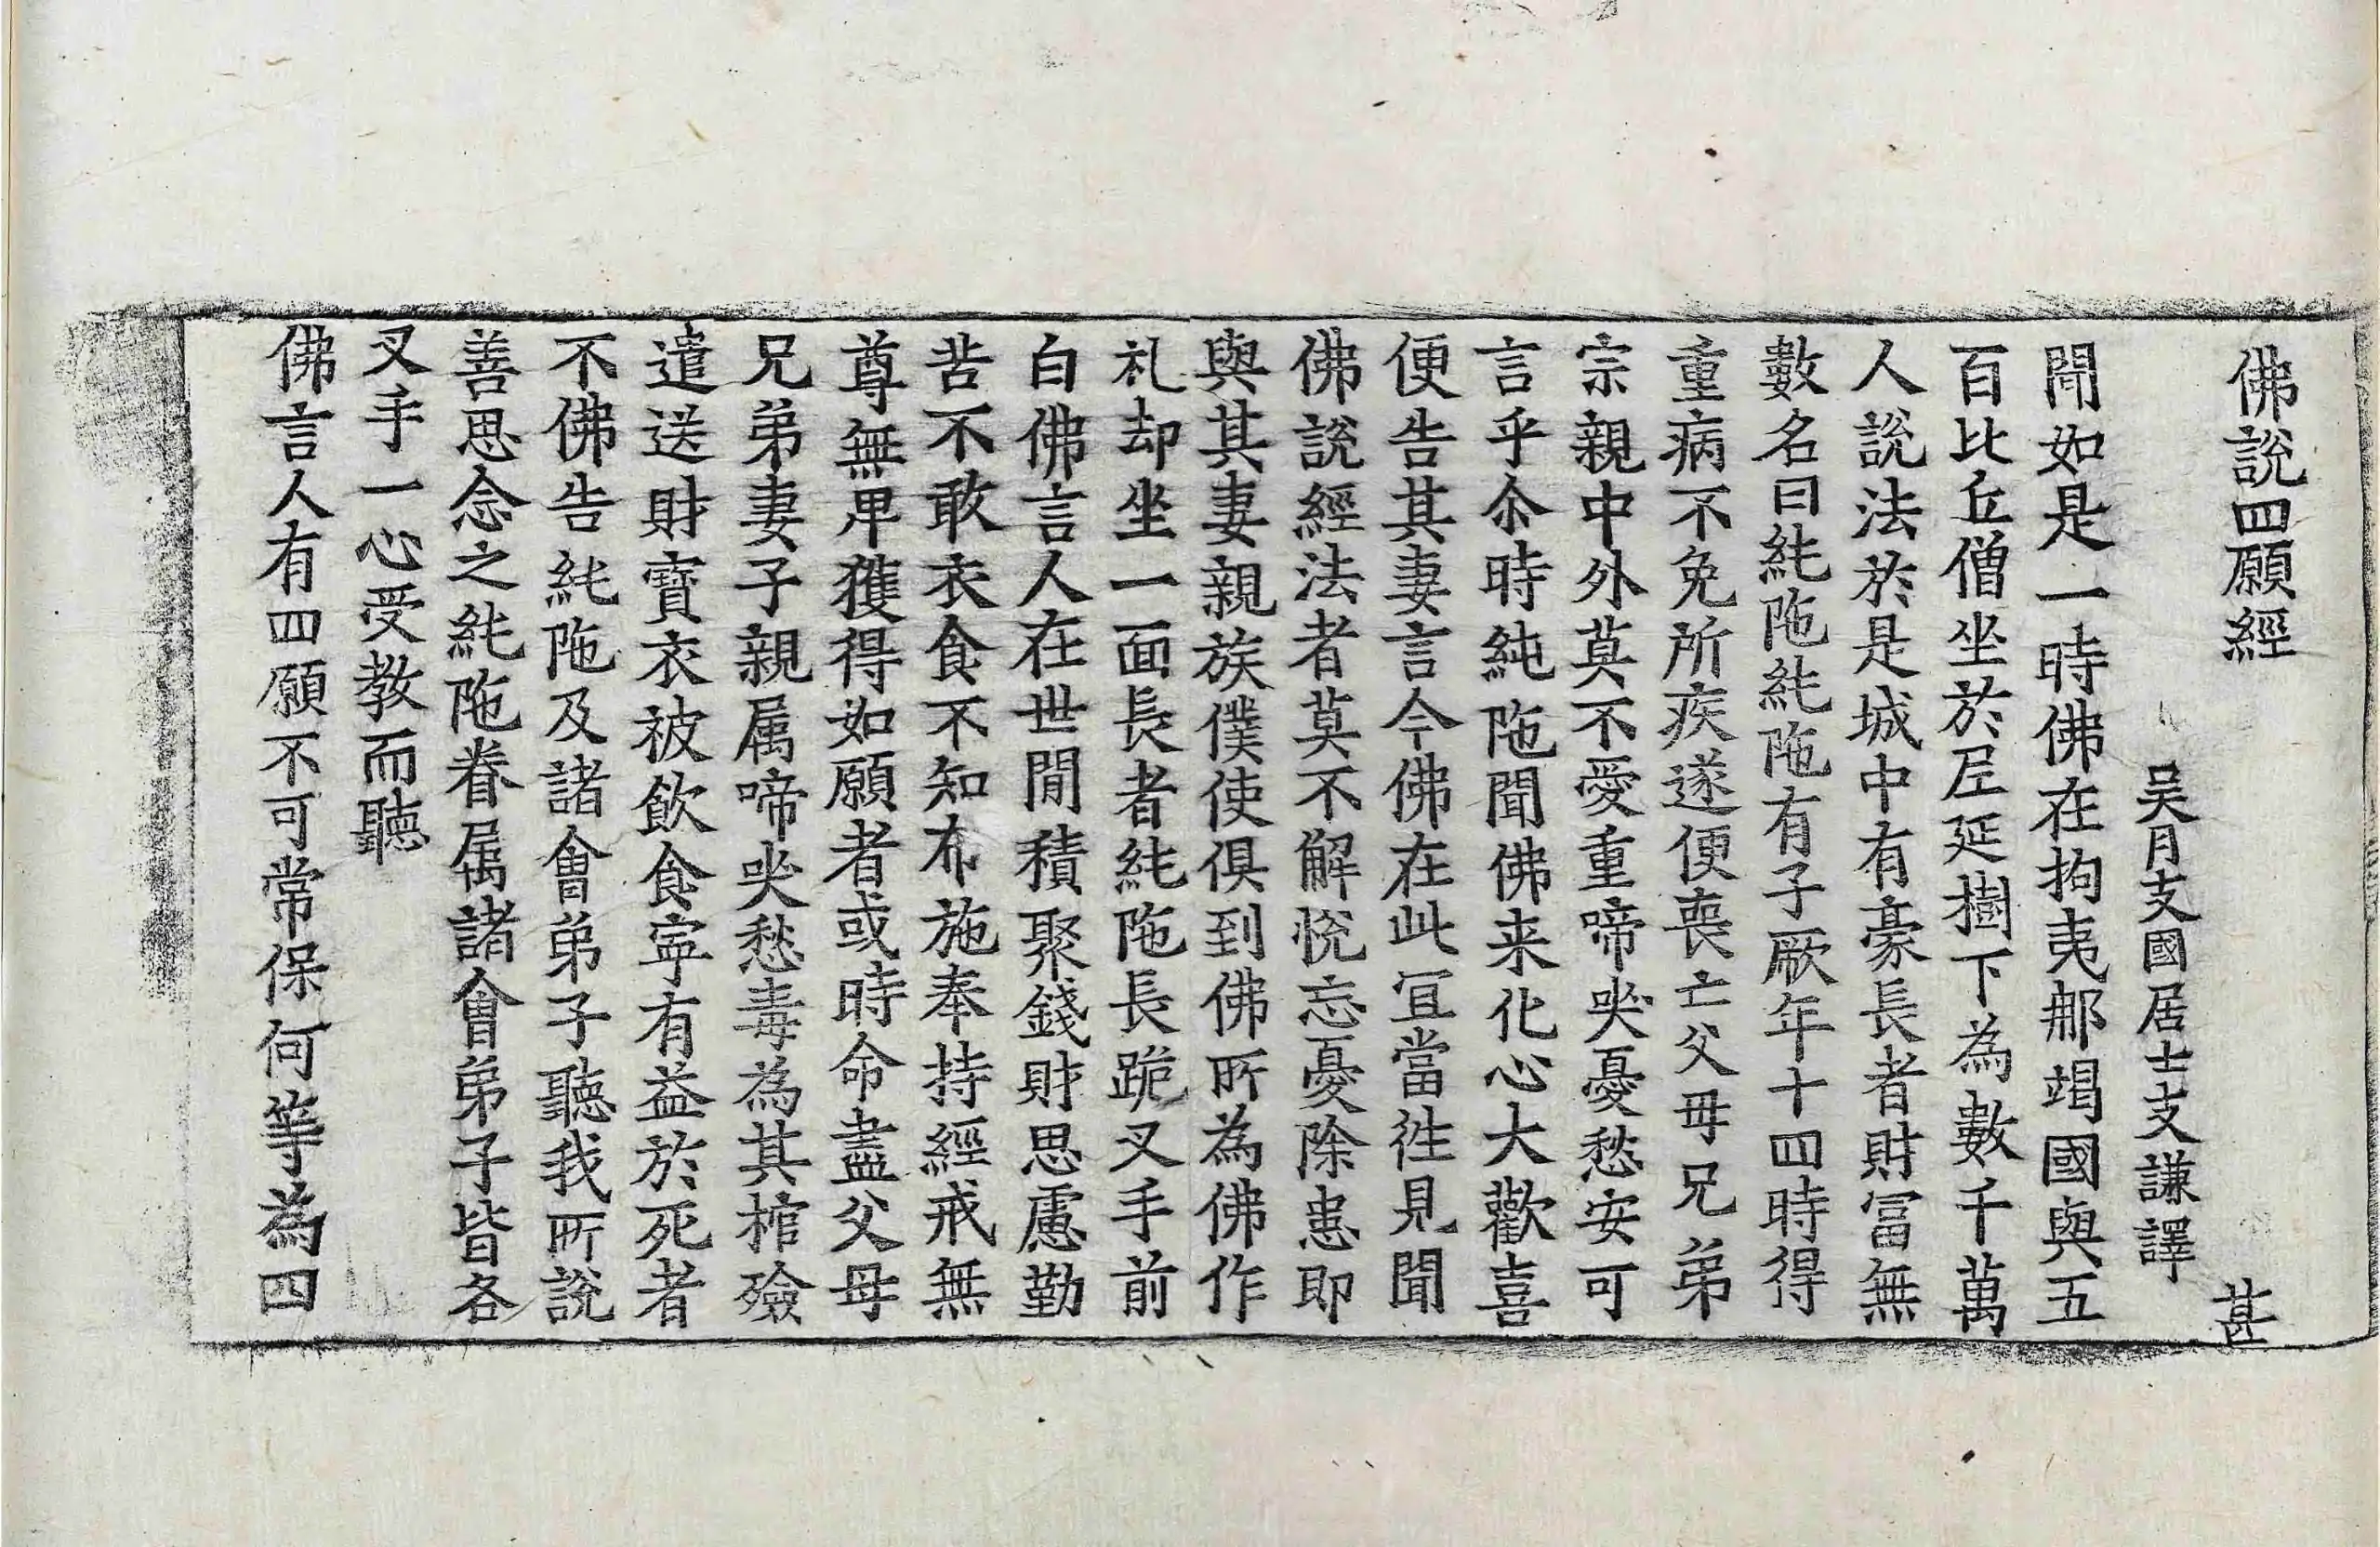 佛說四願經 甚
吳月支國居士支謙譯
聞如是一時佛在拘夷那竭國與五
百比丘僧坐於尼延樹下為數千萬
人說法於是城中有豪長者財富無
數名曰純陁純陁有子厥年十四時得
重病不免所疾遂便喪亡父母兄弟
宗親中外莫不愛重啼哭憂愁安可
言乎尒時純陁聞佛来化心大歡喜
便告其妻言今佛在此宜當往見聞
佛說經法者莫不解恱忘憂除患即
與其妻親族僕使俱到佛所為佛作
礼却坐一面長者純陁長跪叉手前
白佛言人在世間積聚錢財思慮勤
苦不敢衣食不知布施奉持經戒無
尊無卑獲得如願者或時命盡父母
兄弟妻子親属啼哭愁毒為其棺殮
遣送財寶衣被飲食寧有益於死者
不佛告純陁及諸會弟子聽我所說
善思念之純陁眷属諸會弟子皆各
叉手一心受教而聽
佛言人有四願不可常保何等為四